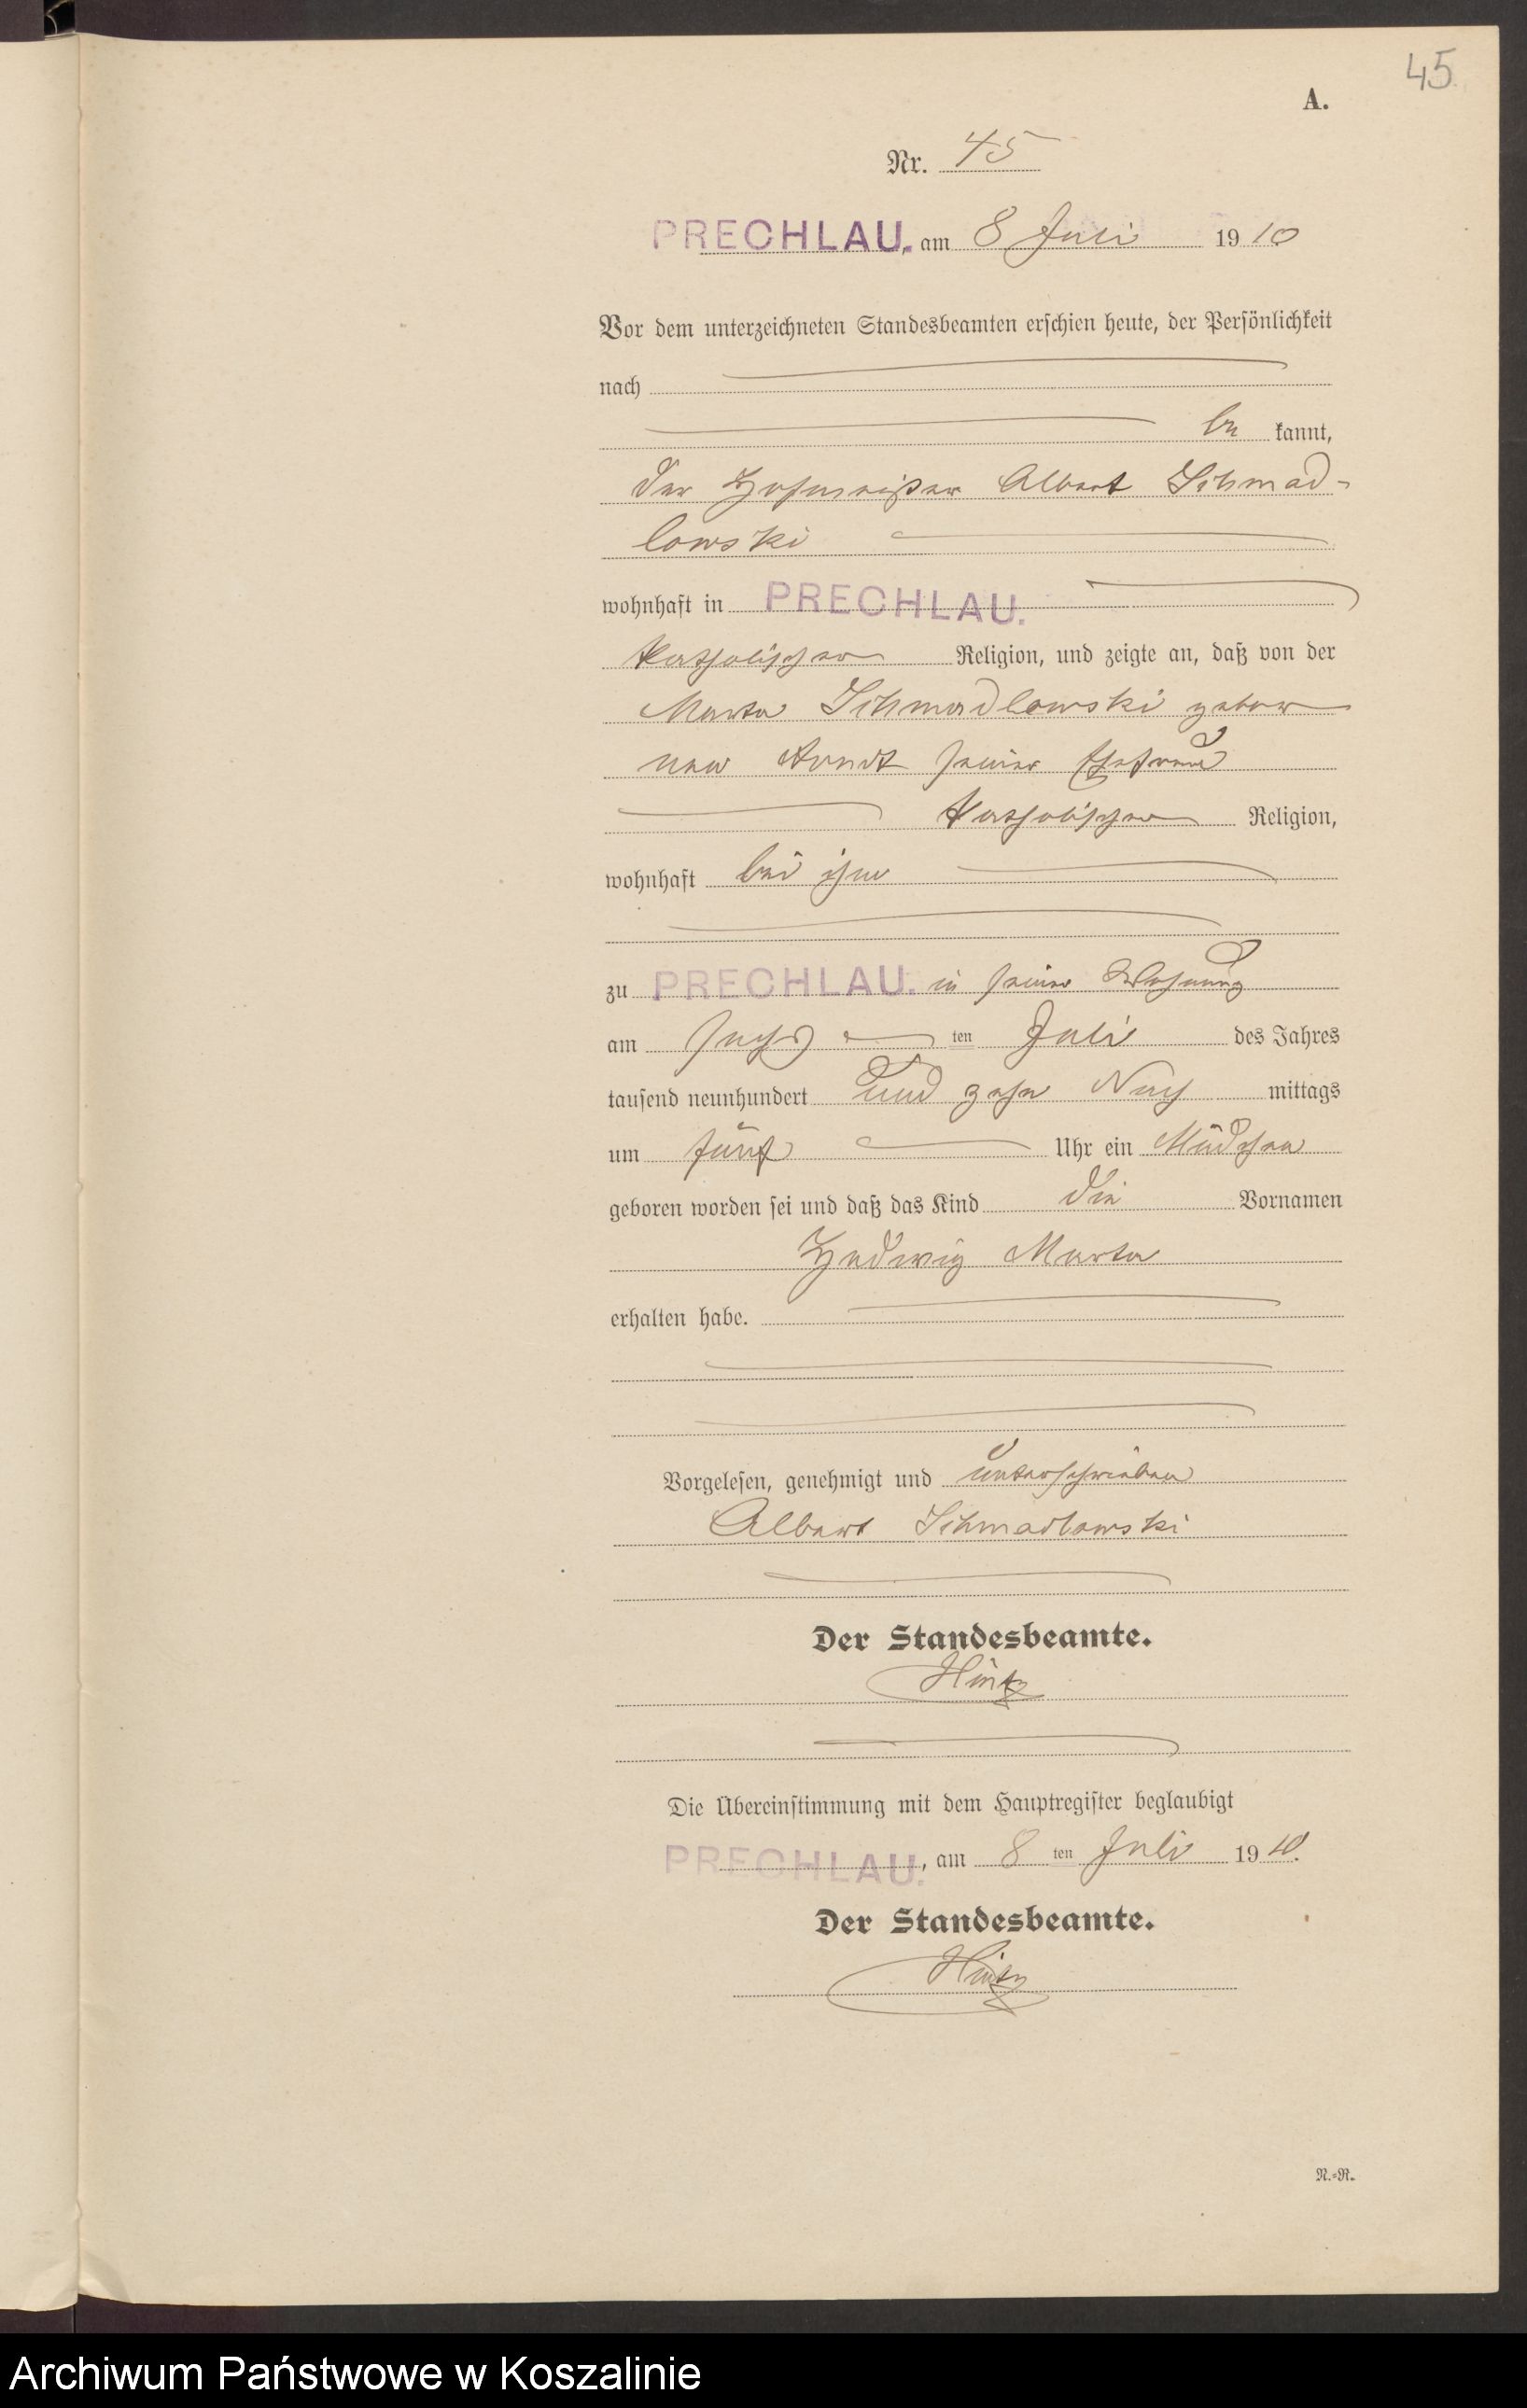 45
A.
Nr. 45
PRECHLAU, am 8 Juli 1910
Vor dem unterzeichneten Standesbeamten erschien heute, der Persönlichkeit
nach
be kannt,
der Hofmeister Albert Schmad-
lowski
wohnhaft in PRECHLAU.
katholischer Religion, und zeigte an, daß von der
Marta Schmadlowski gebor
nen Arndt seiner Ehefrau
katholischer Religion,
wohnhaft bei ihm
zu PRECHLAU. in seiner Wohnung
am sechs ten Juli des Jahres
tausend neunhundert und zehn Nach mittags
um fünf Uhr ein Mädchen
geboren worden sei und daß das Kind die Vornamen
Hedwig Marta
erhalten habe.
Vorgelesen, genehmigt und unterschrieben
Albert Schmadlowski
Der Standesbeamte.
Hintz
Die Übereinstimmung mit dem Hauptregister beglaubigt
PRECHLAU., am 8 ten Juli 1910.
Der Standesbeamte.
Hintz
N.=R.
Archiwum Państwowe w Koszalinie